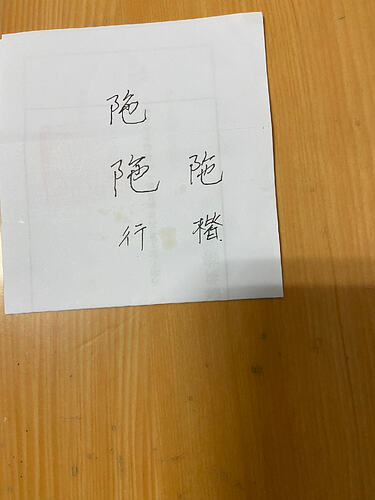 陁
陁 陁
行 楷